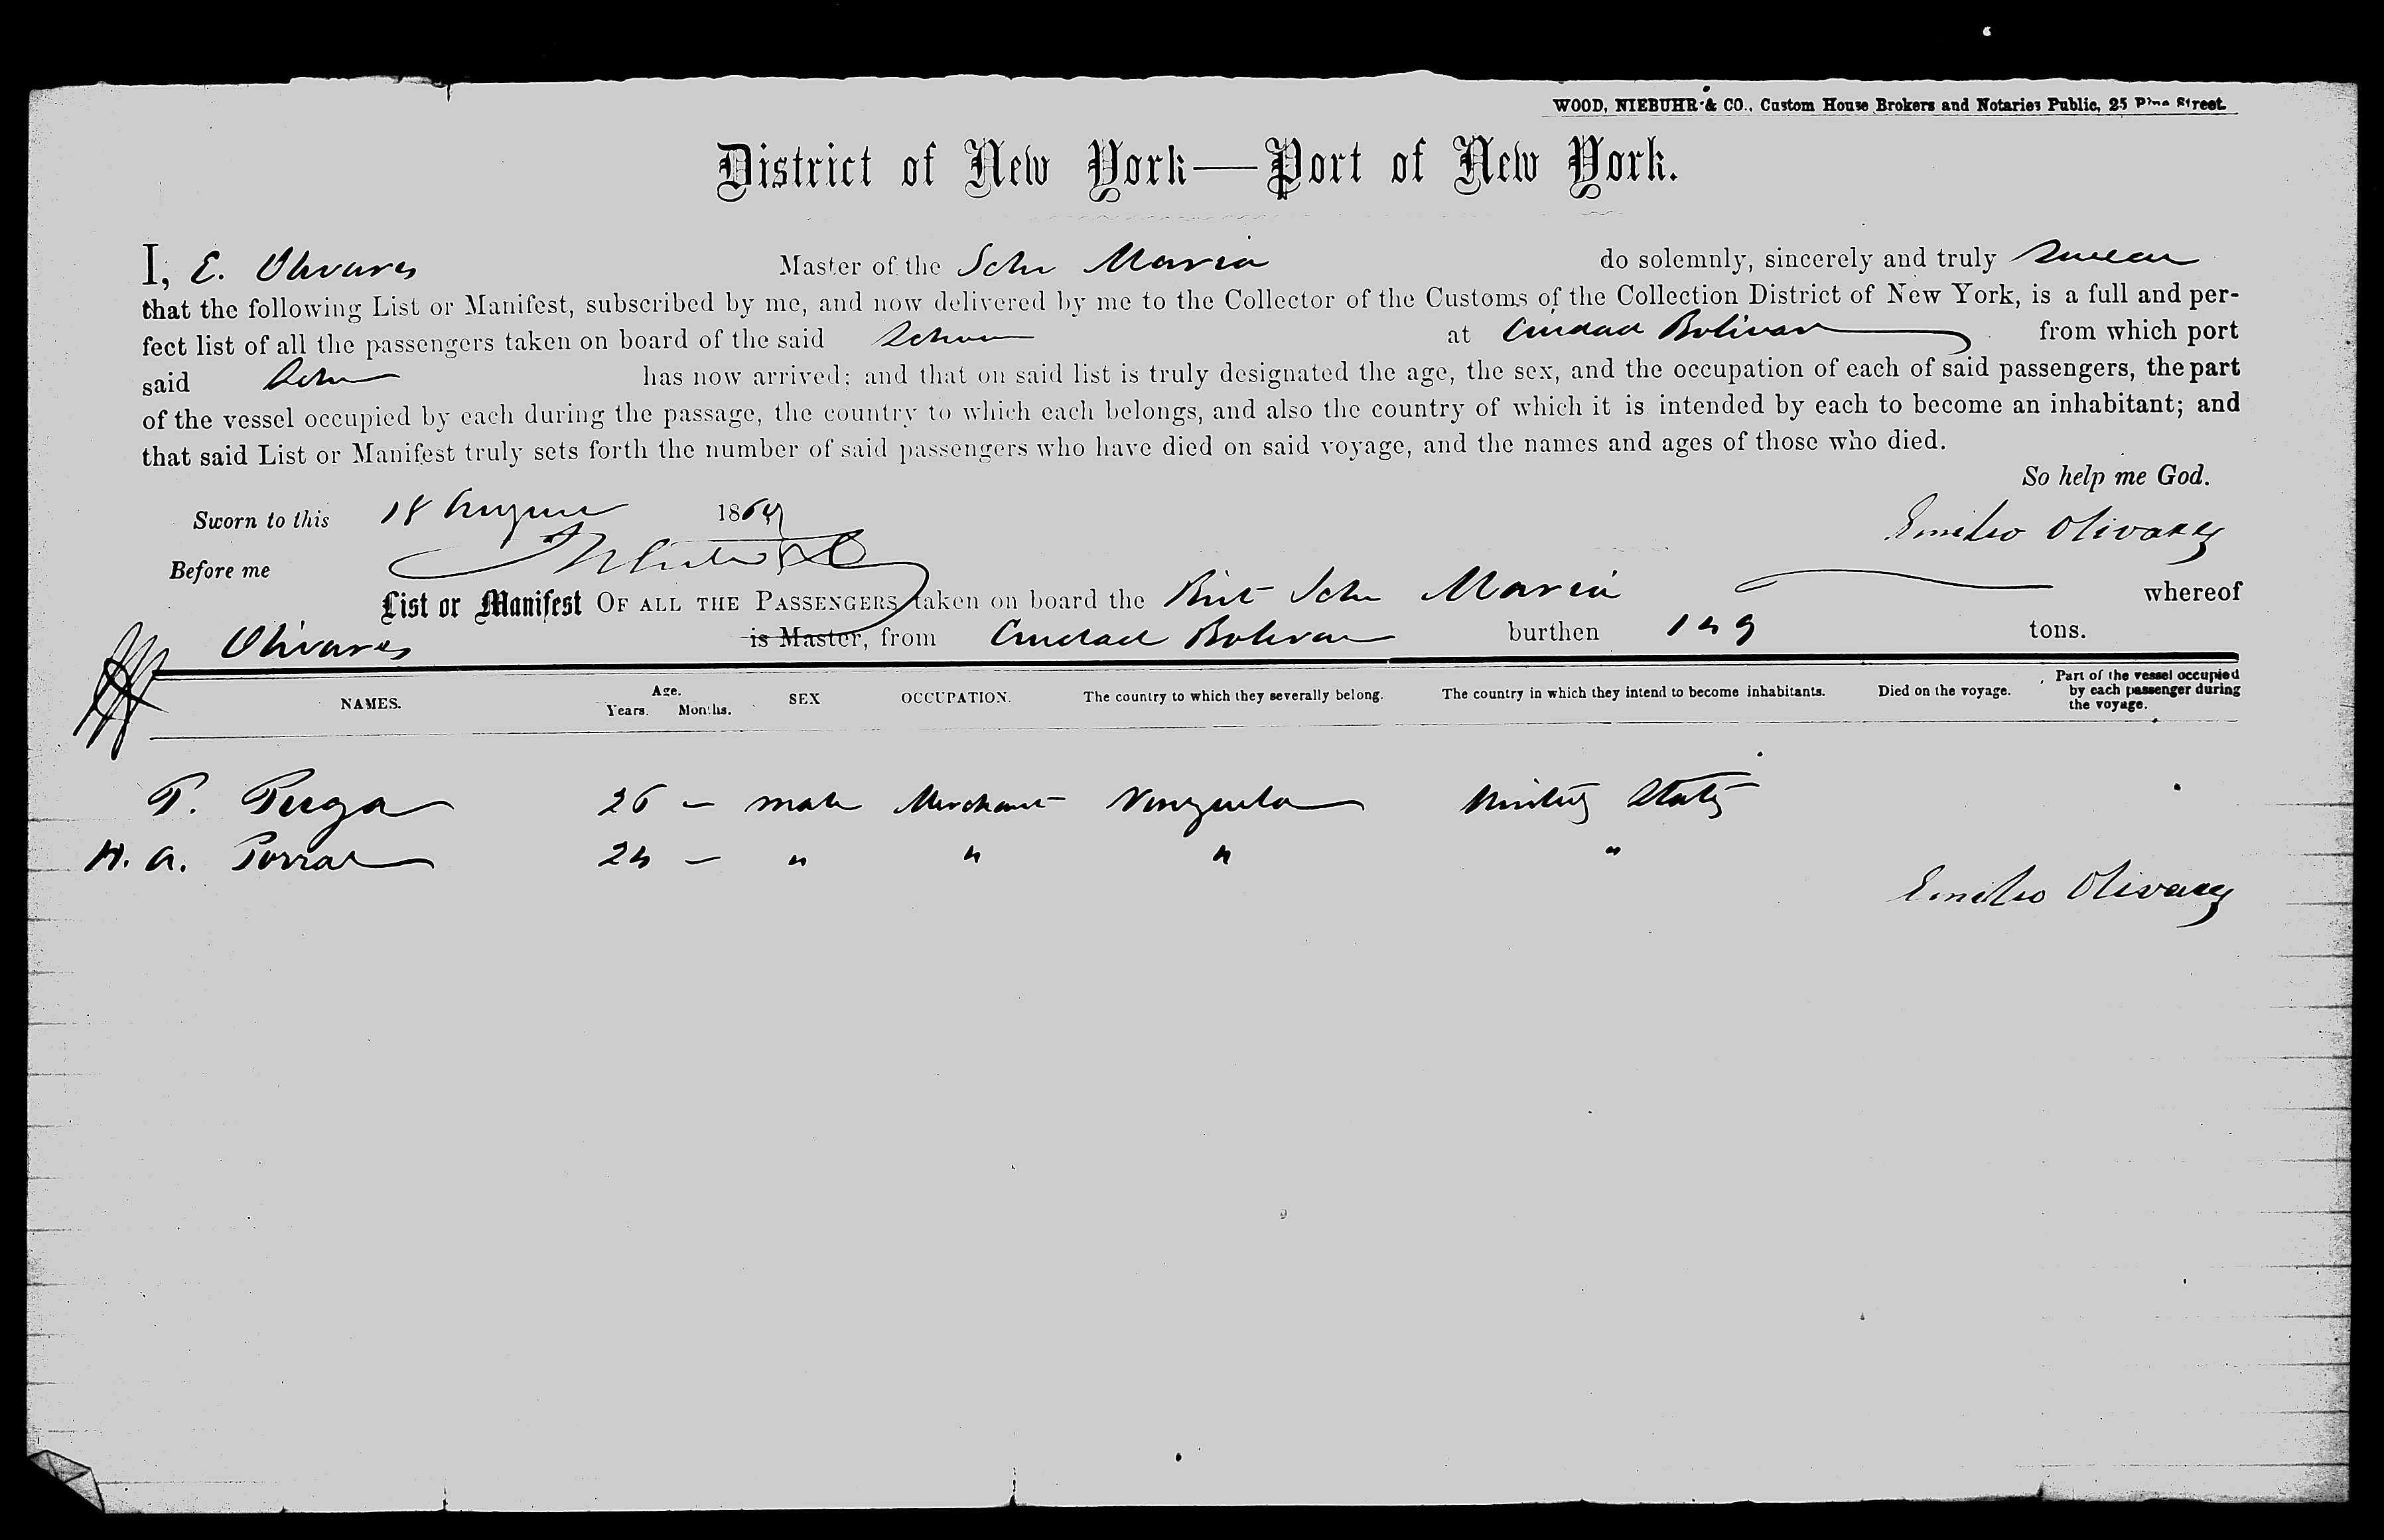 WOOD, NIEBUHR & CO., Custom House Brokers and Notaries Public, 25 Pine Street.
District of New York—Port of New York.
I, E. Olivares Master of the Schr Maria do solemnly, sincerely and truly swear
that the following List or Manifest, subscribed by me, and now delivered by me to the Collector of the Customs of the Collection District of New York, is a full and per-
fect list of all the passengers taken on board of the said Schr at Ciudad Bolivar from which port
said Schr has now arrived; and that on said list is truly designated the age, the sex, and the occupation of each of said passengers, the part
of the vessel occupied by each during the passage, the country to which each belongs, and also the country of which it is intended by each to become an inhabitant; and
that said List or Manifest truly sets forth the number of said passengers who have died on said voyage, and the names and ages of those who died.
So help me God.
Sworn to this 18 August 186
Emilio Olivares
Before me
List or Manifest OF ALL THE PASSENGERS taken on board the Brit Schr Maria whereof
Olivares is Master, from Ciudad Bolivar burthen 149 tons.
NAMES. Age. Years. Months. SEX OCCUPATION. The country to which they severally belong. The country in which they intend to become inhabitants. Died on the voyage. Part of the vessel occupied by each passenger during the voyage.
P. 26 – male Merchant Venezuela United States
H. A. 24 – " " " "
Emilio Olivares